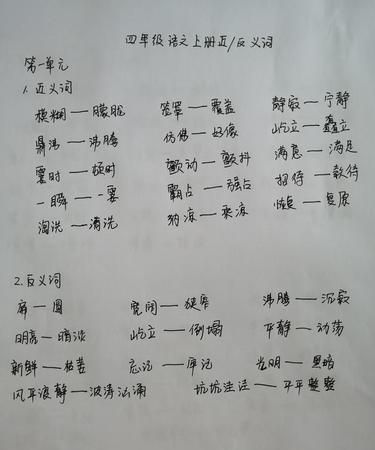 四年级语文上册近/反义词
第一单元
1.近义词
模糊——朦胧 笼罩——覆盖 静寂——宁静
鼎沸——沸腾 仿佛——好像 屹立——矗立
霎时——顿时 颤动——颤抖 满意——满足
一瞬——一霎 霸占——强占 招待——款待
淘洗——清洗 纳凉——乘凉 恢复——复原
2.反义词
扁——圆 宽阔——狭窄 沸腾——沉寂
明亮——暗淡 屹立——倒塌 平静——动荡
新鲜——枯萎 忘记——牢记 光明——黑暗
风平浪静——波涛汹涌 坑坑洼洼——平平整整